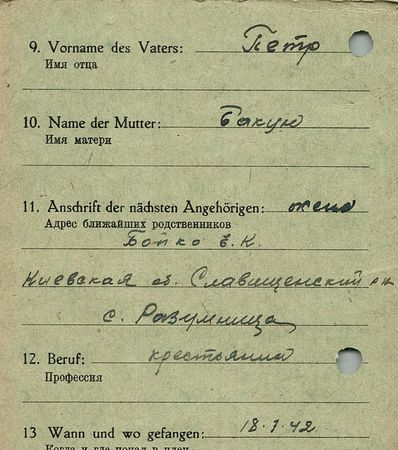 9. Vorname des Vaters: Петр
Имя отца
10. Name der Mutter: Бакун
Имя матери
11. Anschrift der nächsten Angehörigen: жена
Адрес ближайших родственников
Бойко Е.К.
Киевская об. Славищенский р-н
с. Разумница
12. Beruf: крестьянин
Профессия
13 Wann und wo gefangen: 18.7.42
Когда и где попал в плен